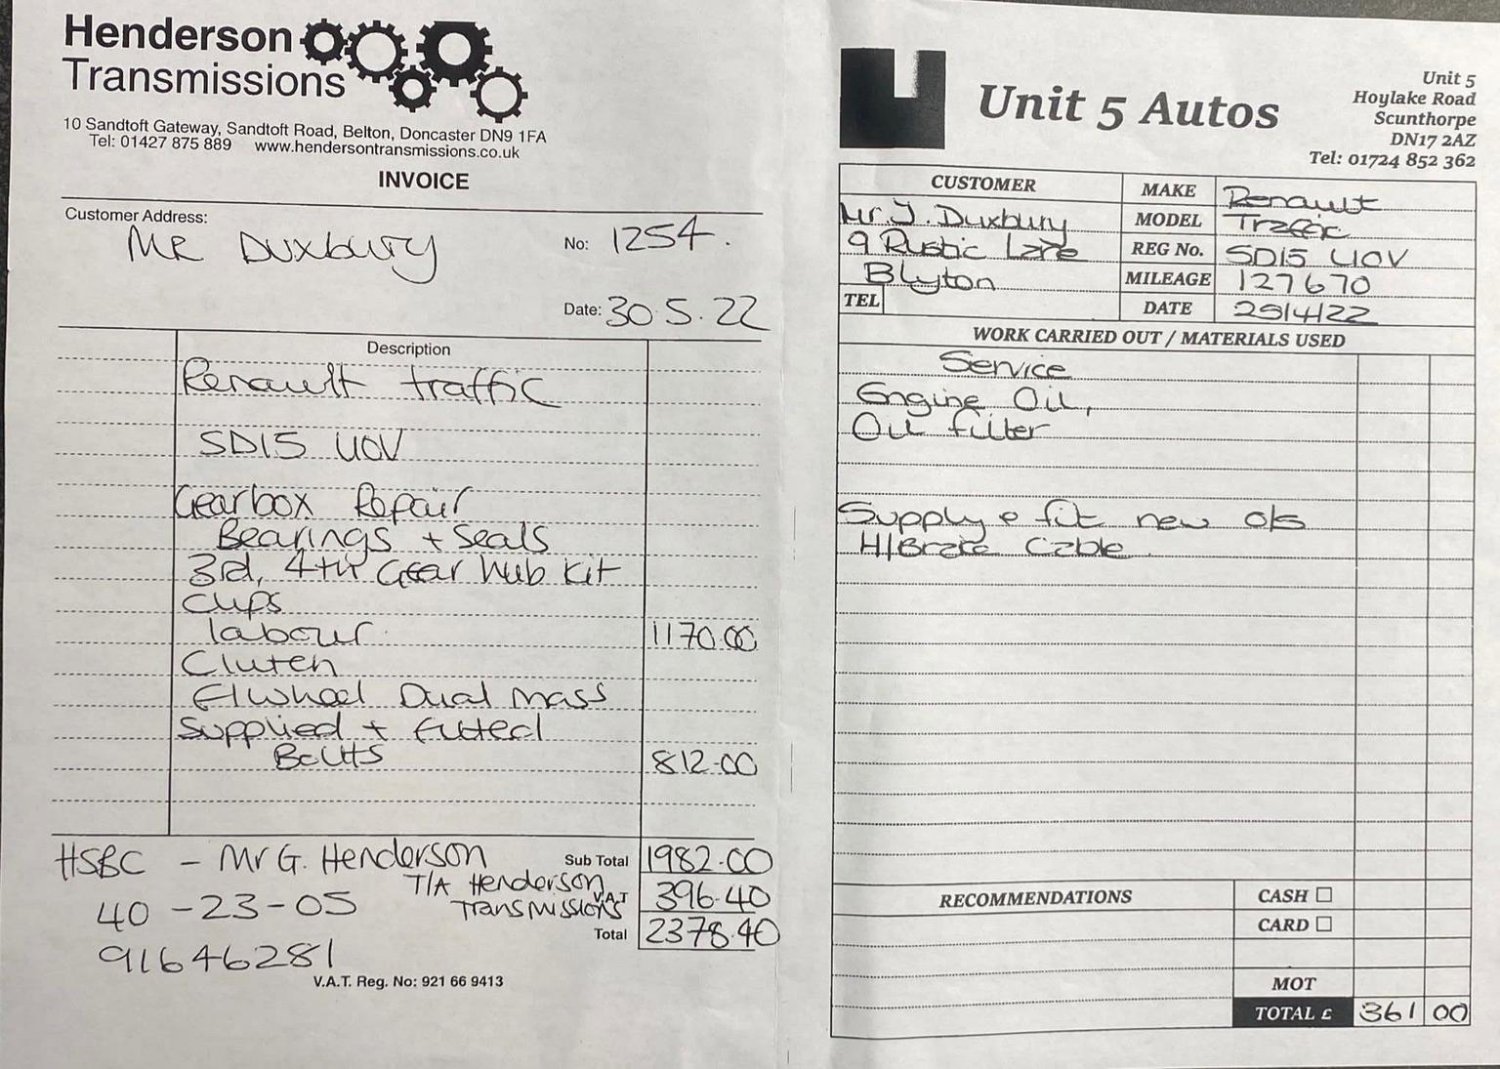 Henderson
Transmissions
10 Sandtoft Gateway, Sandtoft Road, Belton, Doncaster DN9 1FA
Tel: 01427 875 889 www.hendersontransmissions.co.uk
INVOICE
Customer Address:
MR Duxbury
No: 1254.
Date: 30.5.22
Description
Renault traffic
SD15 UOV
Gearbox Repair
Bearings + Seals
3rd, 4th Gear hub kit
cups
labour 1170.00
Clutch
F/wheel Dual mass
Supplied + fitted
Bolts 812.00
HSBC - Mr G. Henderson
T/A Henderson
Transmissions
40-23-05
91646281
Sub Total 1982.00
V.A.T 396.40
Total 2378.40
V.A.T. Reg. No: 921 66 9413
Unit 5 Autos
Unit 5
Hoylake Road
Scunthorpe
DN17 2AZ
Tel: 01724 852 362
CUSTOMER
Mr. J. Duxbury
9 Rustic Lane
Blyton
TEL
MAKE Renault
MODEL Traffic
REG No. SD15 UOV
MILEAGE 127670
DATE 29/4/22
WORK CARRIED OUT / MATERIALS USED
Service
Engine Oil,
Oil filter
Supply & fit new o/s
H/Brake Cable
RECOMMENDATIONS
CASH
CARD
MOT
TOTAL £ 361 00